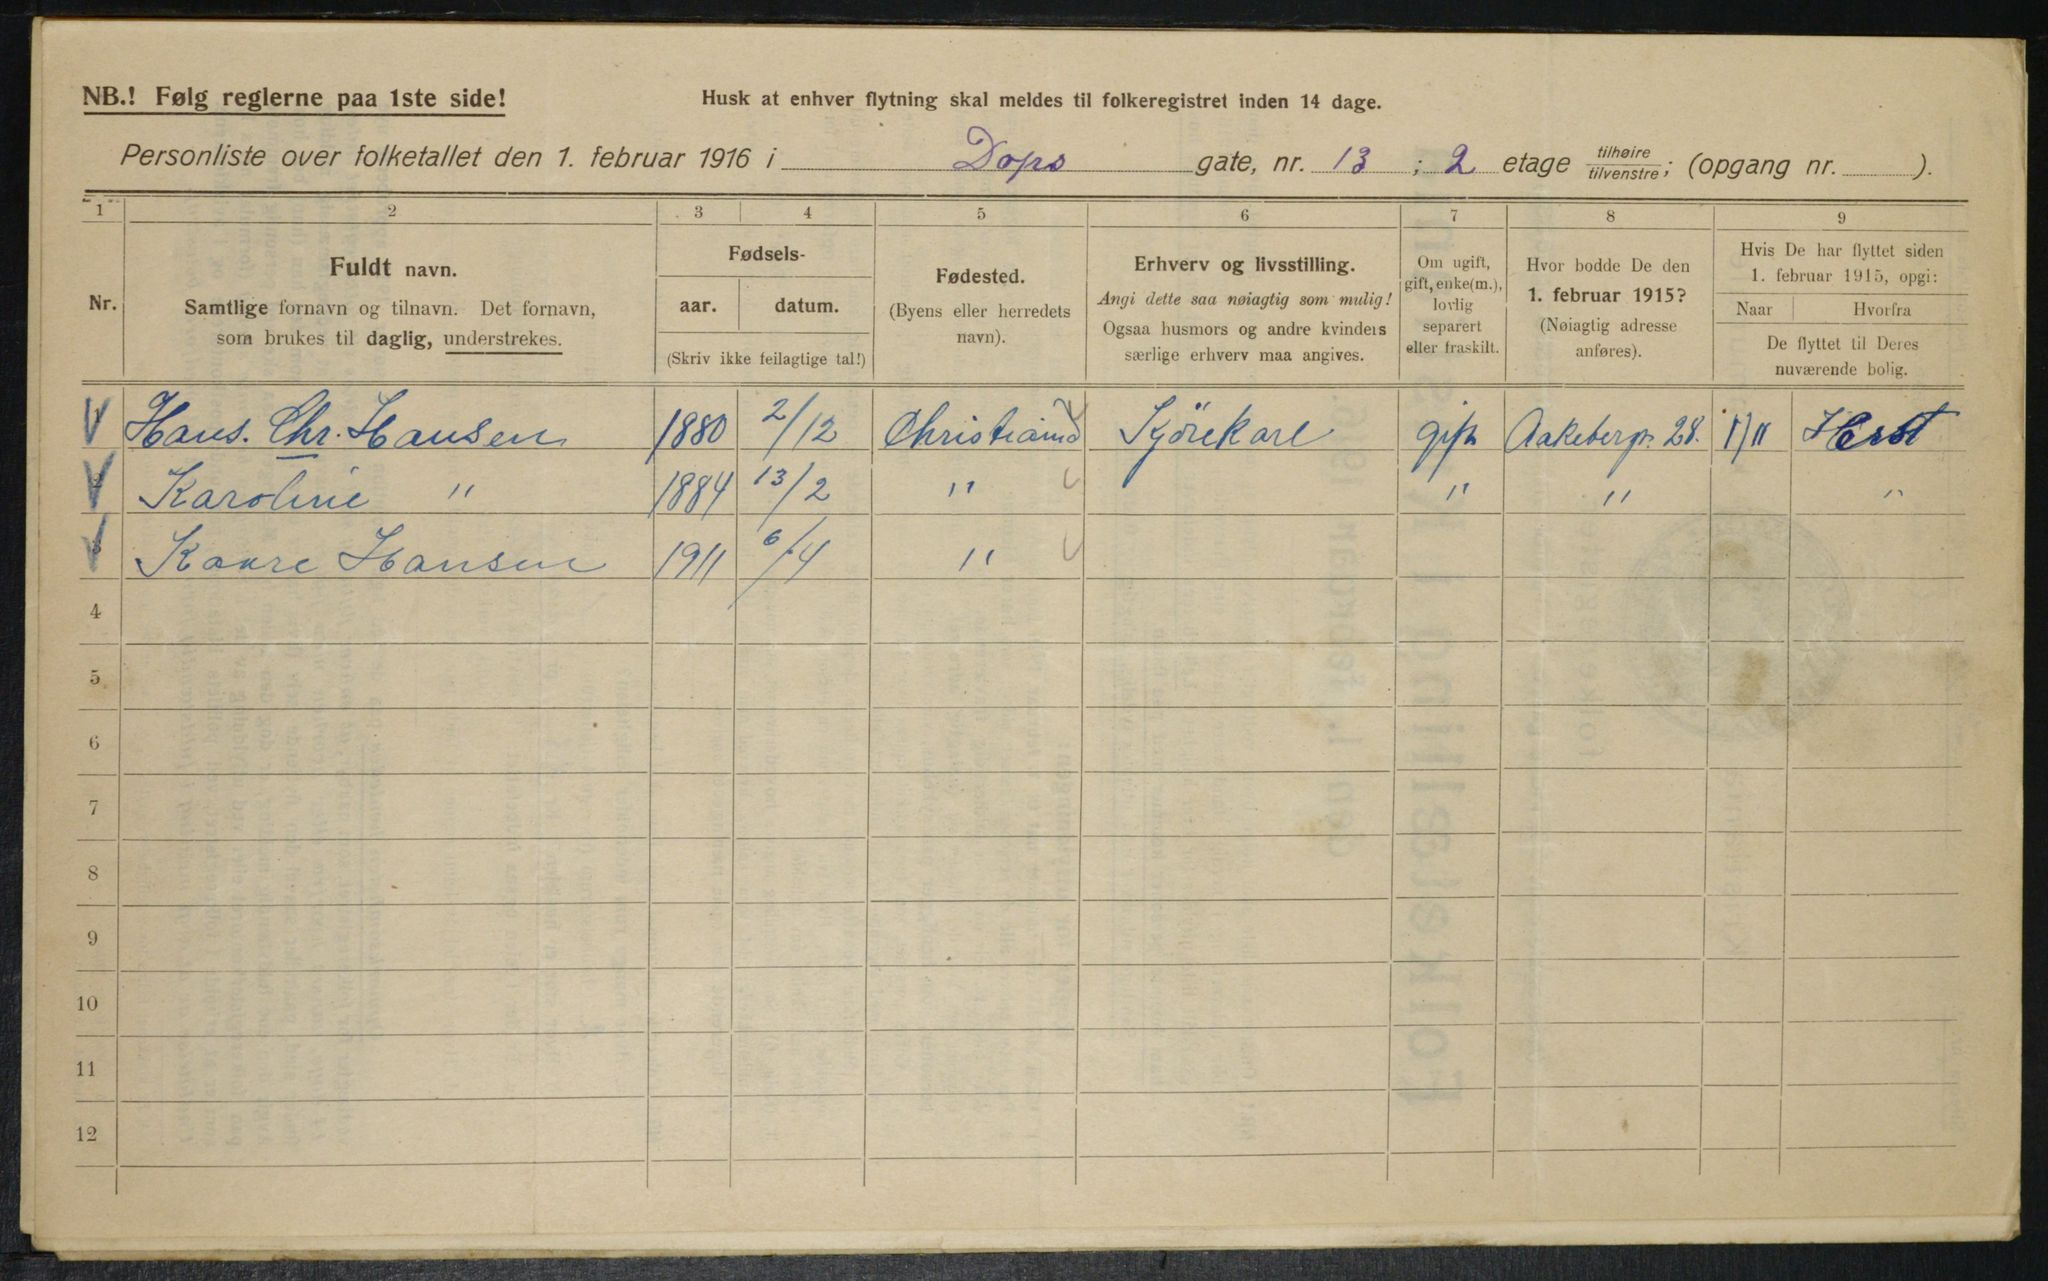 NB.! Følg reglerne paa 1ste side!
Husk at enhver flytning skal meldes til folkeregistret inden 14 dage.
Personliste over folketallet den 1. februar 1916 i Dops gate, nr. 13 ; 2 etage tilhøire / tilvenstre ; (opgang nr. ).
1 2 3 4 5 6 7 8 9
Nr.
Fuldt navn.
Samtlige fornavn og tilnavn. Det fornavn,
som brukes til daglig, understrekes.
Fødsels-
aar. datum.
(Skriv ikke feilagtige tal!)
Fødested.
(Byens eller herredets
navn).
Erhverv og livsstilling.
Angi dette saa nøiagtig som mulig!
Ogsaa husmors og andre kvinders
særlige erhverv maa angives.
Om ugift,
gift, enke(m.),
lovlig
separert
eller fraskilt.
Hvor bodde De den
1. februar 1915?
(Nøiagtig adresse
anføres).
Hvis De har flyttet siden
1. februar 1915, opgi:
Naar Hvorfra
De flyttet til Deres
nuværende bolig.
Hans. Chr. Hansen 1880 2/12 Christiania Kjörekarl gift Aakebergv. 28.
2 Karoline " 1884 13/2 " " " "
3 Kaare Hansen 1911 6/4 "
4
5
6
7
8
9
10
11
12